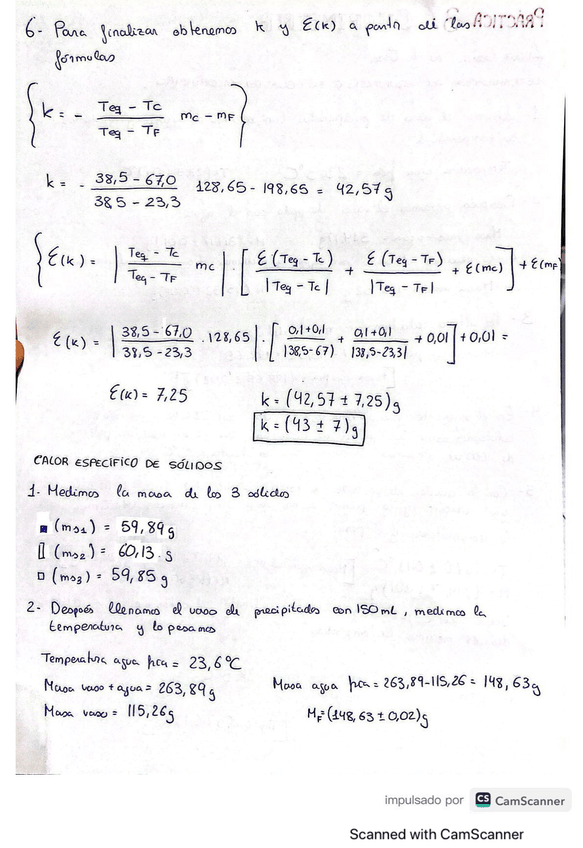 6- Para finalizar obtenemos k y Ɛ(k) a partir de las
fórmulas
PRÁCTICA
{ k = - (Teq - Tc) / (Teq - TF) mc - mF }
k = - (38,5 - 67,0) / (38,5 - 23,3) 128,65 - 198,65 = 42,57g
{ Ɛ(k) = | (Teq - Tc) / (Teq - TF) mc | · [ Ɛ(Teq - Tc) / |Teq - Tc| + Ɛ(Teq - TF) / |Teq - TF| + Ɛ(mc) ] + Ɛ(mF
Ɛ(k) = | (38,5 - 67,0) / (38,5 - 23,3) · 128,65 | · [ (0,1+0,1) / |38,5-67) + (0,1+0,1) / |38,5-23,3| + 0,01 ] + 0,01 =
Ɛ(k) = 7,25 k = (42,57 ± 7,25)g
k = (43 ± 7)g
CALOR ESPECÍFICO DE SÓLIDOS
1- Medimos la masa de los 3 sólidos
(ms1) = 59,89g
(ms2) = 60,13 g
(ms3) = 59,85g
2- Después llenamos el vaso de precipitados con 150mL, medimos la
temperatura y lo pesamos
Temperatura agua fría = 23,6°C
Masa vaso + agua = 263,89g Masa agua fría = 263,89-115,26 = 148,63g
Masa vaso = 115,26g MF=(148,63 ± 0,02)g
impulsado por CS CamScanner
Scanned with CamScanner